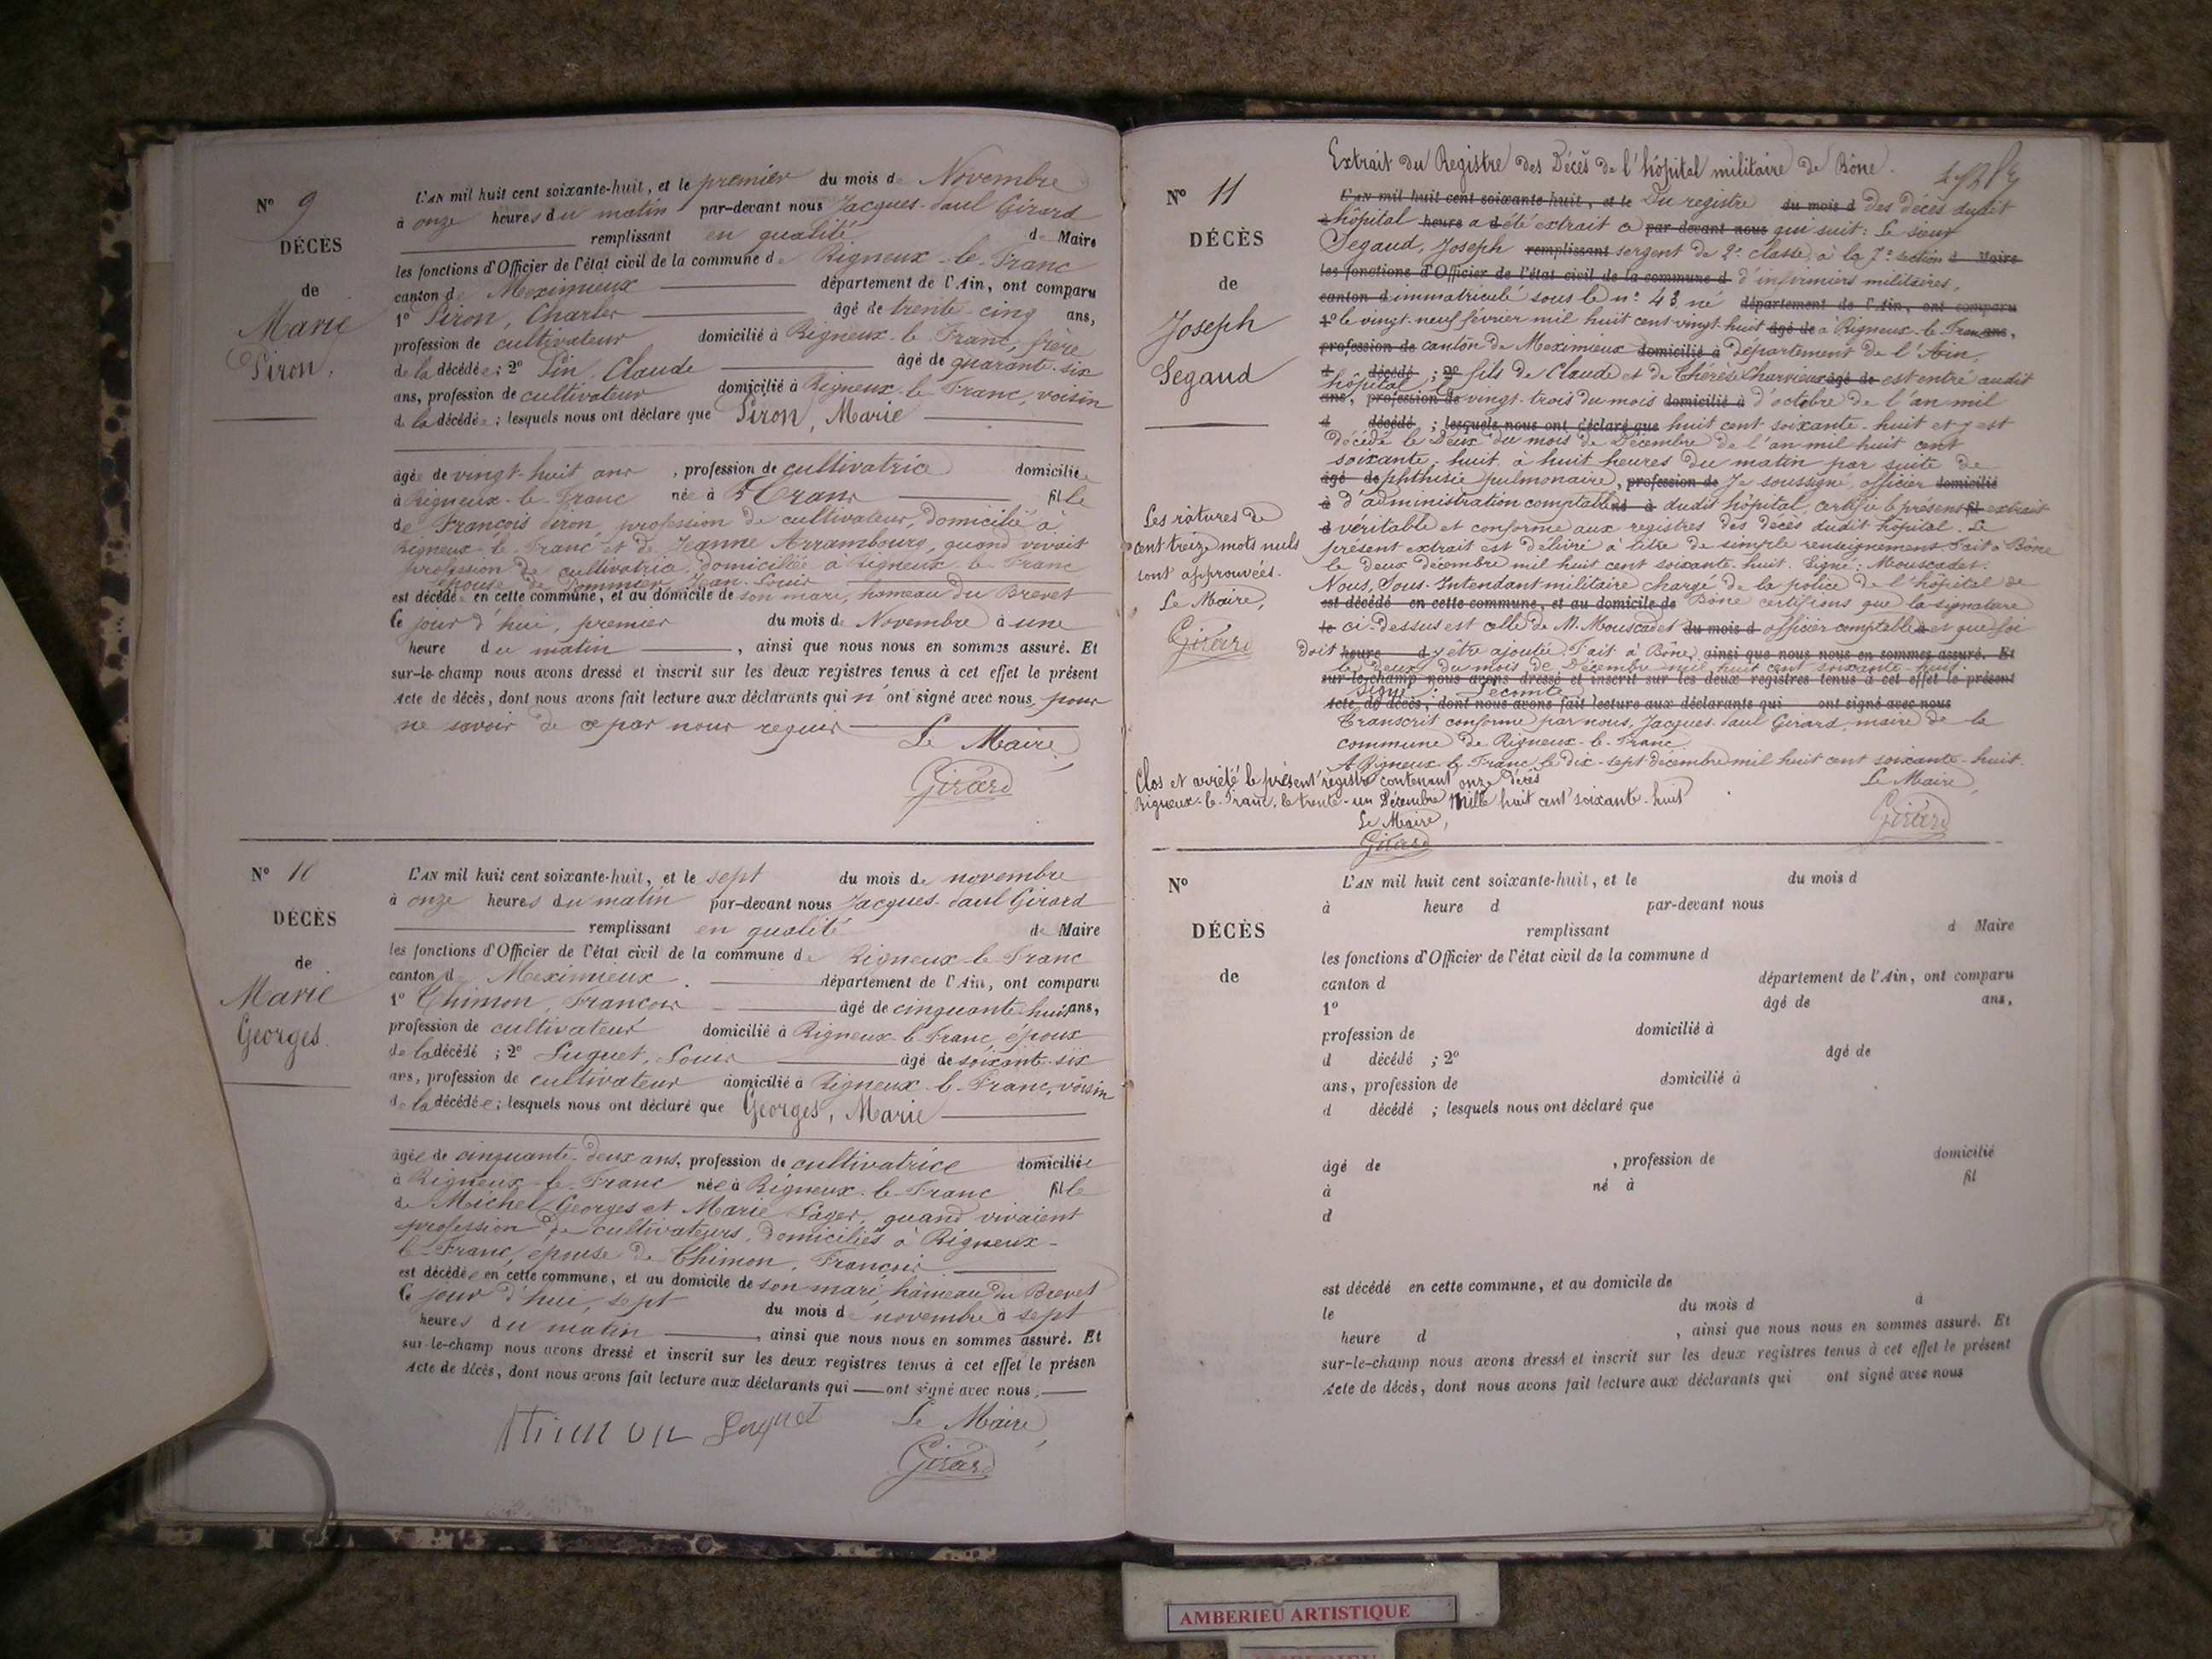 N° 9
DÉCÈS
de
Marie
Piron.
L'AN mil huit cent soixante-huit, et le premier du mois de Novembre
à onze heures du matin par-devant nous Jacques-Paul Girard
remplissant en qualité de Maire
les fonctions d'Officier de l'état civil de la commune de Rigneux-le-Franc
canton de Meximieux département de l'Ain, ont comparu
1° Piron, Charles âgé de trente-cinq ans,
profession de cultivateur domicilié à Rigneux-le-Franc, frère
de la décédée; 2° Pin, Claude âgé de quarante-six
ans, profession de cultivateur domicilié à Rigneux-le-Franc, voisin
de la décédée; lesquels nous ont déclaré que Piron, Marie
âgée de vingt-huit ans, profession de cultivatrice domiciliée
à Rigneux-le-Franc née à fille
de François Piron, profession de cultivateur, domicilié à
Rigneux-le-Franc et de Jeanne Arrambourg, quand vivait
profession de cultivatrice, domiciliée à Rigneux-le-Franc
épouse de Pommier, Jean-Louis
est décédée en cette commune, et au domicile de son mari, hameau du Brevet
le jour d'hui, premier du mois de Novembre à une
heure du matin, ainsi que nous nous en sommes assuré. Et
sur-le-champ nous avons dressé et inscrit sur les deux registres tenus à cet effet le présent
Acte de décès, dont nous avons fait lecture aux déclarants qui n'ont signé avec nous, pour
ne savoir de ce par nous requis
Le Maire,
Girard
N° 10
DÉCÈS
de
Marie
Georges
L'AN mil huit cent soixante-huit, et le sept du mois de novembre
à onze heures du matin par-devant nous Jacques-Paul Girard
remplissant en qualité de Maire
les fonctions d'Officier de l'état civil de la commune de Rigneux-le-Franc
canton d Meximieux département de l'Ain, ont comparu
1° Thimon, François âgé de cinquante-huit ans,
profession de cultivateur domicilié à Rigneux-le-Franc, époux
de la décédé; 2° Luquet, Louis âgé de soixante-six
ans, profession de cultivateur domicilié à Rigneux-le-Franc, voisin
de la décédée; lesquels nous ont déclaré que Georges, Marie
âgée de cinquante-deux ans, profession de cultivatrice domiciliée
à Rigneux-le-Franc née à Rigneux-le-Franc fille
de Michel Georges et Marie quand vivaient
profession de cultivateurs, domiciliés à Rigneux-
le-Franc, épouse de Thimon, François
est décédée en cette commune, et au domicile de son mari, hameau du Brevet
le jour d'hui, sept du mois de novembre à sept
heures du matin, ainsi que nous nous en sommes assuré. Et
sur-le-champ nous avons dressé et inscrit sur les deux registres tenus à cet effet le présen
Acte de décès, dont nous avons fait lecture aux déclarants qui ont signé avec nous,
Thimon Luquet Le Maire,
Girard
Extrait du Registre des Décès de l'hôpital militaire de Bône.
N° 11
DÉCÈS
de
Joseph
Segaud
L'AN mil huit cent soixante-huit, et le Du registre du mois d des décès dudit
à hôpital heure a d été extrait ce par-devant nous qui suit: le sieur
Segaud, Joseph remplissant sergent de 2e classe, à la 7e section d Maire
les fonctions d'Officier de l'état civil de la commune d d'infirmiers militaires,
canton d immatriculé sous le n° 43, né département de l'Ain, ont comparu
1° le vingt-neuf février mil huit cent vingt-huit âgé de à Rigneux-le-Franc ans,
profession de canton de Meximieux domicilié à département de l'Ain,
d décédé; 2° fils de Claude et de Thérèse Charvieux âgé de est entré audit
hôpital le
ans, profession de vingt-trois du mois domicilié à d'octobre de l'an mil
d décédé; lesquels nous ont déclaré que huit cent soixante-huit et y est
décédé le Deux du mois de Décembre de l'an mil huit cent
soixante-huit à huit heures du matin par suite de
âgé de phthisie pulmonaire, profession de Je soussigné, officier domicilié
à d'administration comptable né à dudit hôpital, certifie le présent fil extrait
d véritable et conforme aux registres des décès dudit hôpital. Le
présent extrait est délivré à titre de simple renseignement. Fait à Bône
le deux décembre mil huit cent soixante-huit. Signé: Mouscadet.
Nous, Sous-Intendant militaire chargé de la police de l'hôpital de
est décédé en cette commune, et au domicile de Bône certifions que la signature
le ci-dessus est celle de M. Mouscadet du mois d officier comptable à et que foi
doit heure d y être ajoutée. Fait à Bône, ainsi que nous nous en sommes assuré. Et
le deux du mois de Décembre mil huit cent soixante-huit.
sur-le-champ nous avons dressé et inscrit sur les deux registres tenus à cet effet le présent
Signé: Lecomte
Acte de décès, dont nous avons fait lecture aux déclarants qui ont signé avec nous
Transcrit conforme par nous, Jacques-Paul Girard, maire de la
commune de Rigneux-le-Franc.
A Rigneux-le-Franc, le dix-sept décembre mil huit cent soixante-huit.
Le Maire,
Girard
Les ratures de
cent treize mots nuls
sont approuvées.
Le Maire,
Girard
Clos et arrêté le présent registre contenant onze Décès
Rigneux-le-Franc, le trente-un Décembre mille huit cent soixante-huit
Le Maire,
Girard
N°
DÉCÈS
de
L'AN mil huit cent soixante-huit, et le du mois d
à heure d par-devant nous
remplissant d Maire
les fonctions d'Officier de l'état civil de la commune d
canton d département de l'Ain, ont comparu
1° âgé de ans,
profession de domicilié à
d décédé ; 2° âgé de
ans, profession de domicilié à
d décédé ; lesquels nous ont déclaré que
âgé de , profession de domicilié
à né à fil
d
est décédé en cette commune, et au domicile de
le du mois d à
heure d , ainsi que nous nous en sommes assuré. Et
sur-le-champ nous avons dressé et inscrit sur les deux registres tenus à cet effet le présent
Acte de décès, dont nous avons fait lecture aux déclarants qui ont signé avec nous
AMBERIEU ARTISTIQUE